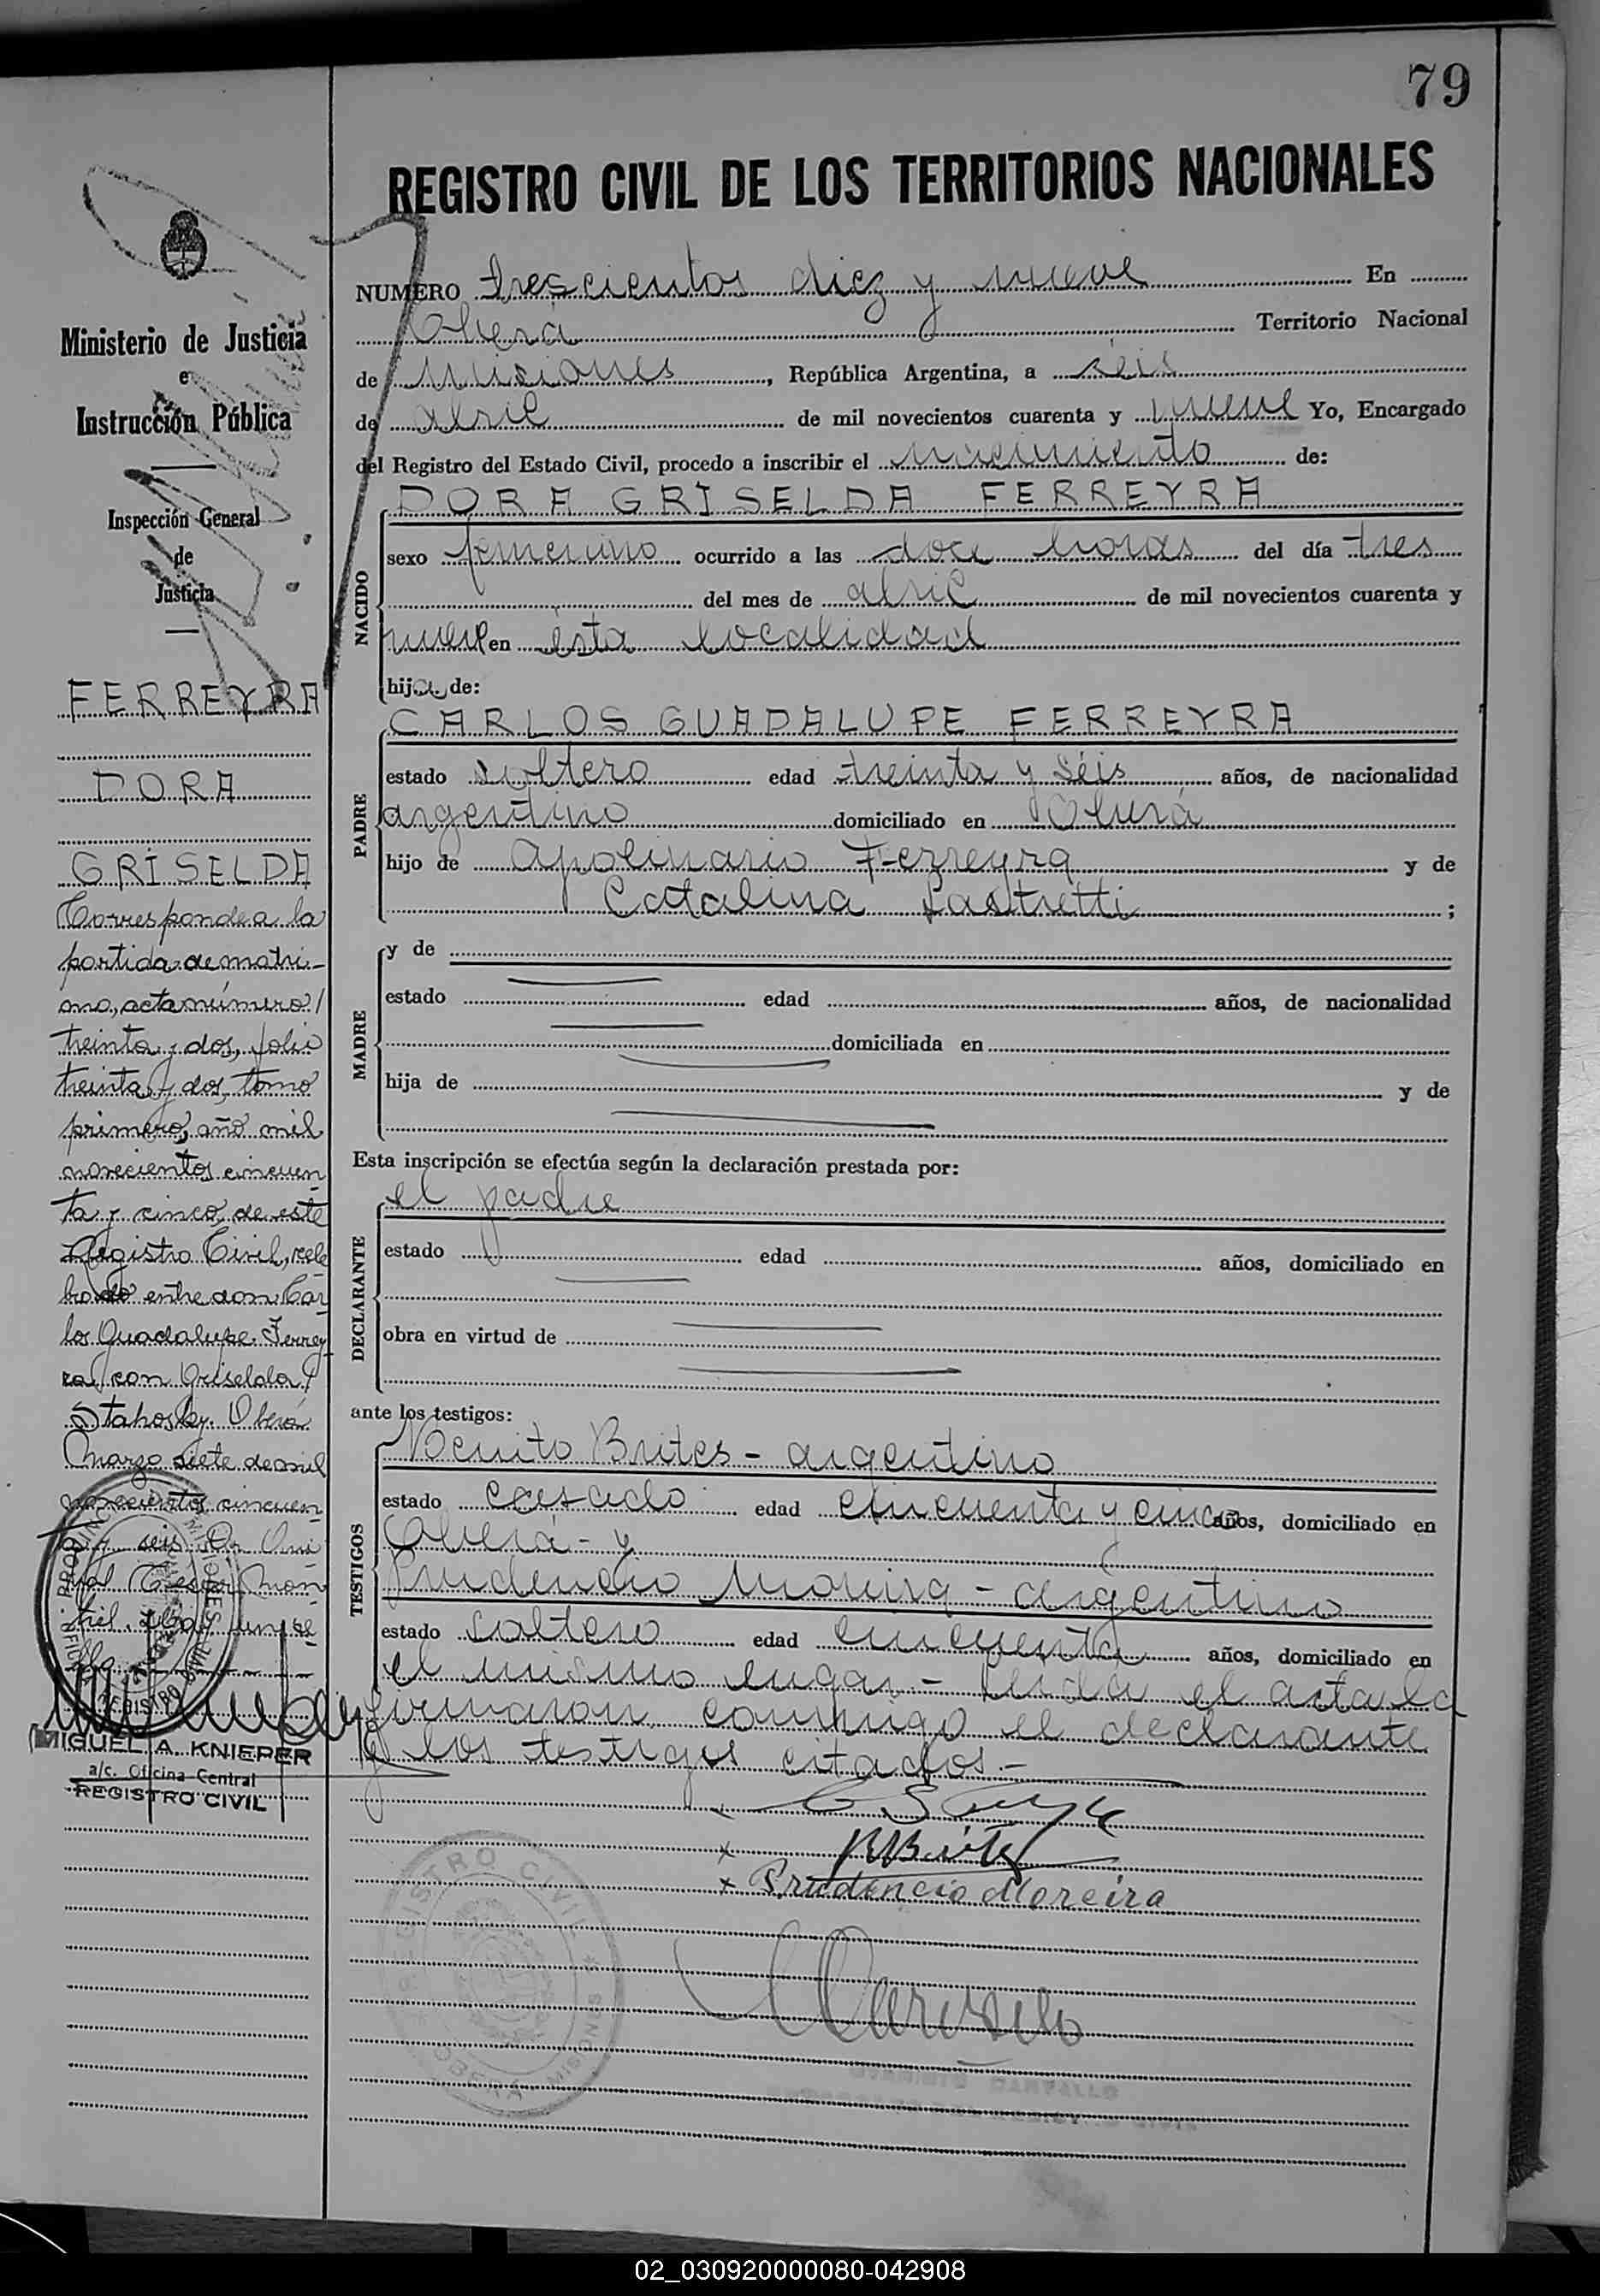 79
REGISTRO CIVIL DE LOS TERRITORIOS NACIONALES
NUMERO trescientos diez y nueve En
Oberá Territorio Nacional
de Misiones, República Argentina, a séis
de abril de mil novecientos cuarenta y nueve Yo, Encargado
del Registro del Estado Civil, procedo a inscribir el nacimiento de:
NACIDO
DORA GRISELDA FERREYRA
sexo femenino ocurrido a las doce horas del día tres
del mes de abril de mil novecientos cuarenta y
nueve en ésta localidad
hija de:
PADRE
CARLOS GUADALUPE FERREYRA
estado soltero edad treinta y séis años, de nacionalidad
argentino domiciliado en Oberá
hijo de Apolinario Ferreyra y de
Catalina Lastretti ;
MADRE
y de
estado edad años, de nacionalidad
domiciliada en
hija de y de
Esta inscripción se efectúa según la declaración prestada por:
DECLARANTE
el padre
estado edad años, domiciliado en
obra en virtud de
ante los testigos:
TESTIGOS
Benito Brites - argentino
estado casado edad cincuenta y cinco años, domiciliado en
Oberá - y
Prudencio Moreira - argentino
estado soltero edad cincuenta años, domiciliado en
el mismo lugar - Leída el acta la
firmaron conmigo el declarante
y los testigos citados.-
x
x BBrites
x Prudencio Moreira
REGISTRO CIVIL
OBERA MISIONES
Ministerio de Justicia
e
Instrucción Pública
Inspección General
de
Justicia
FERREYRA
DORA
GRISELDA
Corresponde a la
partida de matri-
mo, acta número
treinta y dos, folio
treinta y dos, tomo
primero, año mil
novecientos cincuen
ta y cinco, de este
Registro Civil, cele
brado entre don Car
los Guadalupe Ferrey-
ra con Griselda
Stahosky. Oberá
Marzo siete de mil
novecientos cincuen
ta y seis
MIGUEL A. KNIEPER
a/c. Oficina Central
REGISTRO CIVIL
02_030920000080-042908